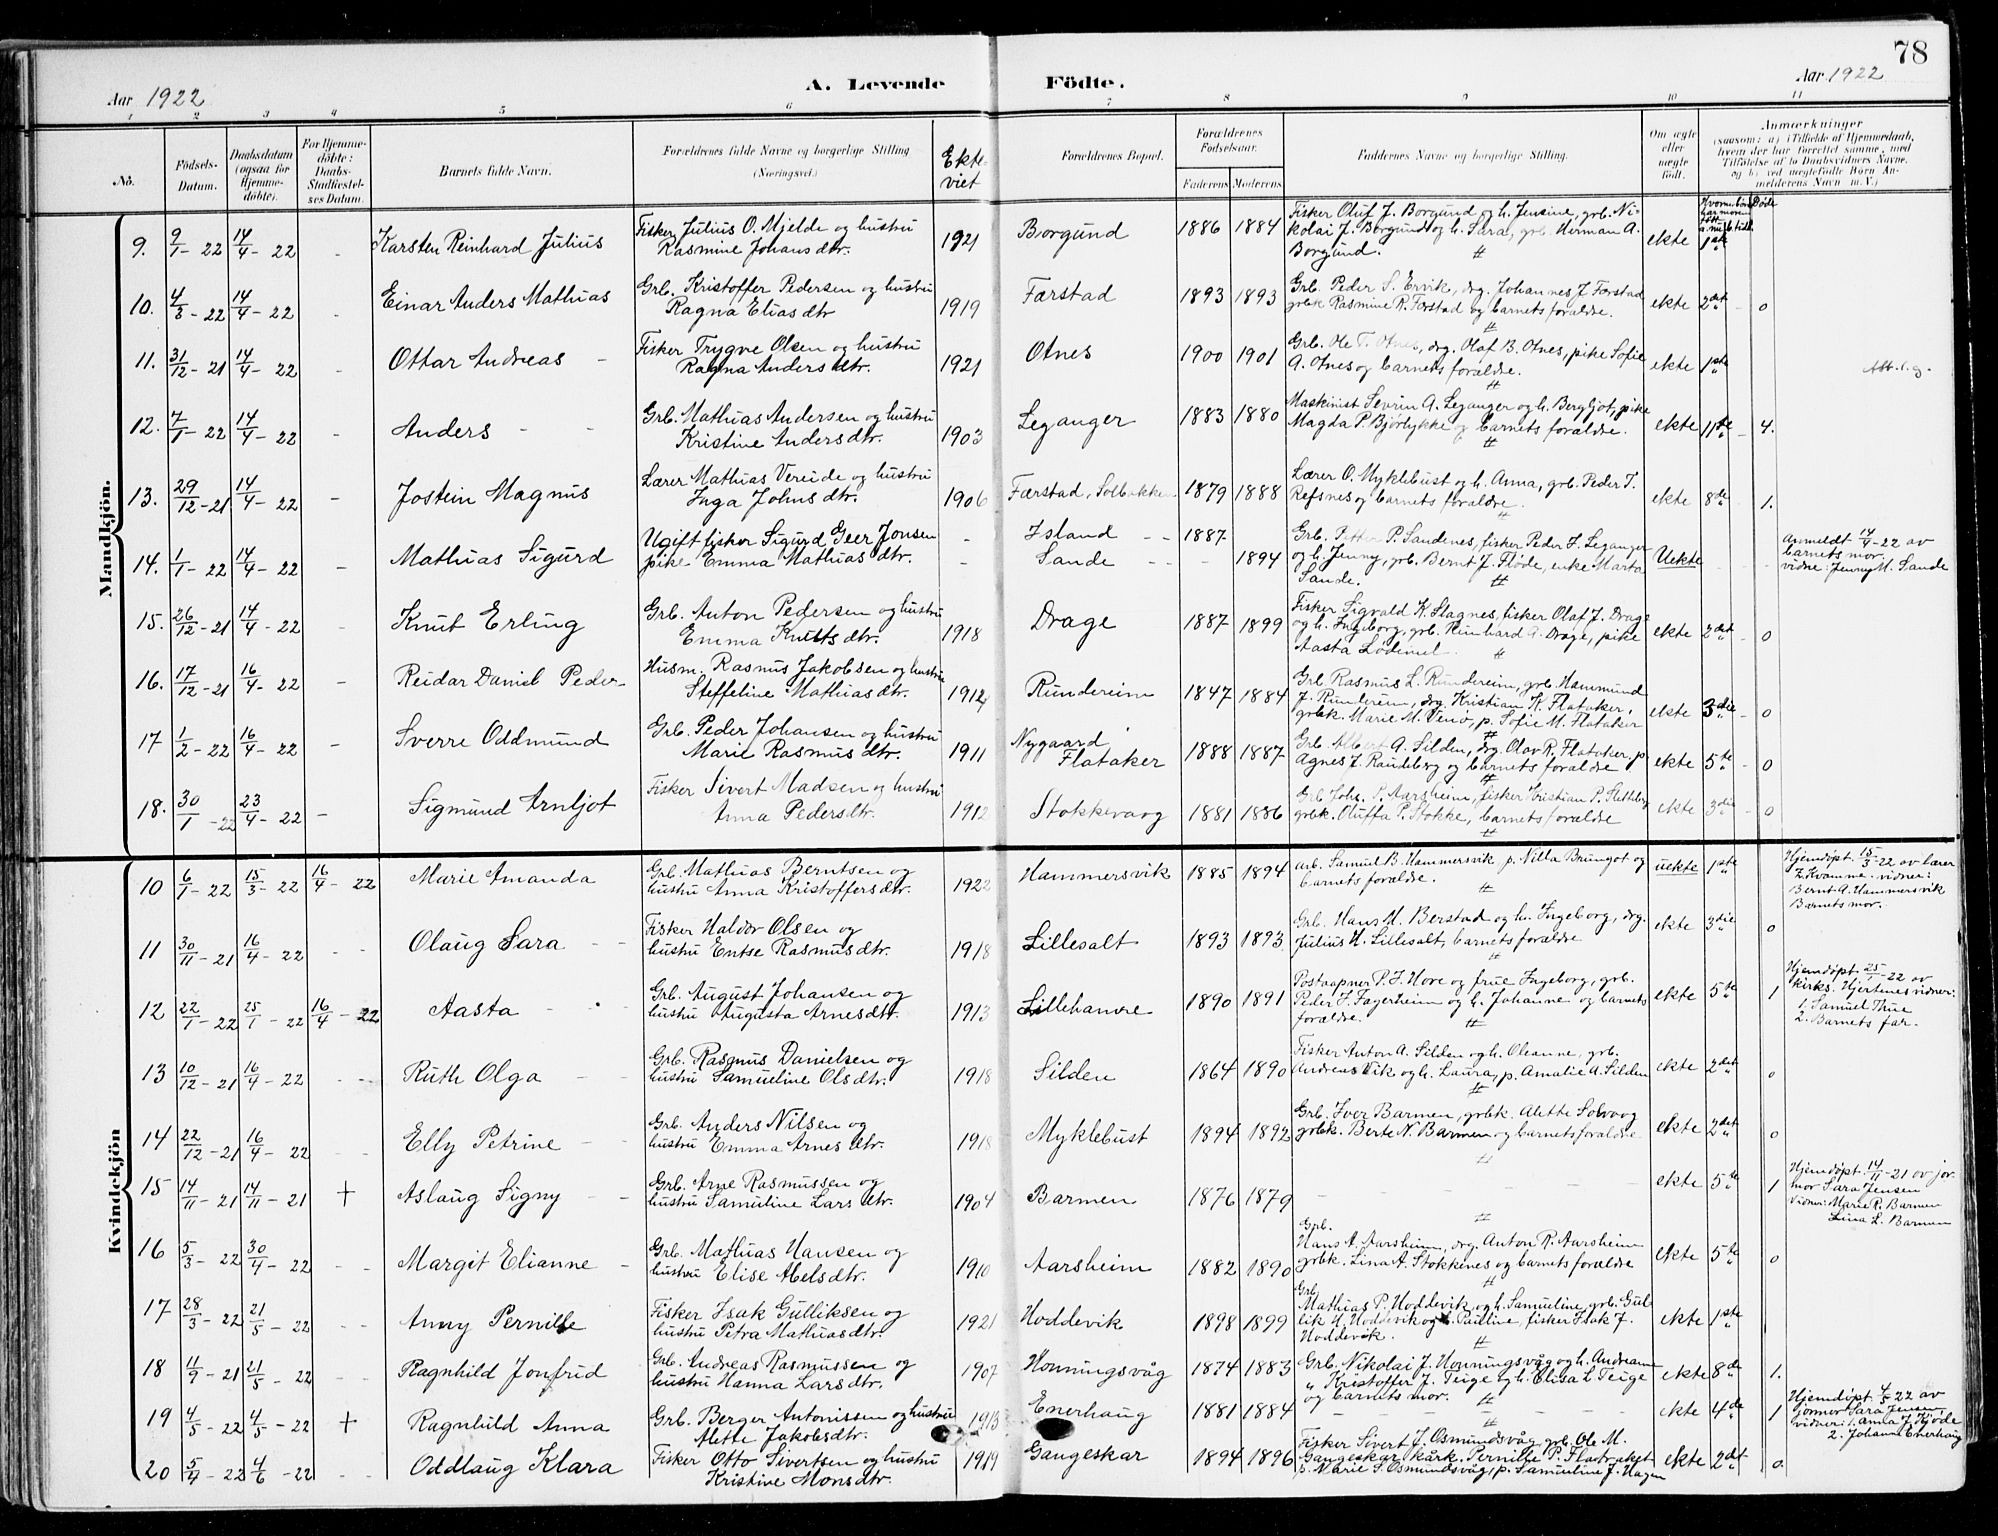 78
A. Levende Födte.
Aar 1922
Aar 1922
1 2 3 4 5 6 7 8 9 10 11
No.
Födsels-Datum.
Daabsdatum (ogsaa for Hjemmedöbte).
For Hjemmedöbte: Daabs-Stadfæstelses Datum.
Barnets fulde Navn.
Forældrenes fulde Navne og borgerlige Stilling (Næringsvei.)
Ekteviet
Forældrenes Bopæl.
Forældrenes Födselsaar.
Faderens Moderens
Faddernes Navne og borgerlige Stilling.
Om ægte eller uægte födt.
Anmærkninger (saasom: a) i Tilfælde af Hjemmedaab, hvem der har forrettet samme, med Tilföielse af to Daabsvidners Navne, og b) ved uægtefödte Börn Anmelderens Navn m. V.)
Mandkjön.
9. 9/1-22 14/4-22 Karsten Reinhard Julius Fisker Julius O. Mjelde og hustru 1921 Borgund 1886 1884 Fisker Oluf J. Borgund og h. Jensine, grb. Ni- ekte 1ste
Rasmine Johansdtr. kolai J. Borgund og h. Sara, grb. Herman A.
Borgund.
10. 4/3-22 14/4-22 - Einar Anders Mathias Grb. Kristoffer Pedersen og hustru 1919 Færstad 1893 1893 Grb. Peder S. Ervik, drg. Johannes J. Færstad ekte 2det - 0
Ragna Eliasdtr grbk Rasmine R. Færstad og barnets forældre.
11. 31/12-21 14/4-22 - Ottar Andreas - Fisker Trygve Olsen og hustru 1921 Otnes 1900 1901 Grb. Ole T. Otnes, drg. Olaf B. Otnes, pike Sofie ekte 1ste
Ragna Andersdtr. A. Otnes og barnets forældre.
12. 7/1-22 14/4-22 - Anders - - Grb. Mathias Andersen og hustru 1903 Leganger 1883 1880 Maskinist Sevrin A. Leganger og h. Bergljot, pike ekte 11te - 4.
Kristine Andersdtr. Magda P. Bjørlykke og barnets forældre.
13. 29/12-21 14/4-22 - Jostein Magnus Lærer Mathias Vereide og hustru 1906 Færstad, Solbakken 1879 1888 Lærer O. Myklebust og h. Anna, grb. Peder T. ekte 8de - 1.
Inga Johnsdtr. Refsnes og barnets forældre.
14. 1/1-22 14/4-22 - Mathias Sigurd Ugift fisker Sigurd Geer Jonsen - Island -- 1887 Grb. Petter P. Sandenes, fisker Peder J. Leganger Uekte Anmeldt 14/4-22 av
pike Emma Mathiasdtr. - Sande -- - 1894 og h. Jenny, grb. Bernt J. Fløde, enke Marta barnets mor.
Sande. vidne: Jenny M. Sande
15. 26/12-21 14/4-22 - Knut Erling Grb. Anton Pedersen og hustru 1918 Drage 1887 1899 Fisker Sigvald K. Stagnes, fisker Olaf J. Drage ekte 2det - 0
Emma Knutsdtr. og h. Ingeborg, grb. Reinhard A. Drage, pike
Aasta Lødemel.
16. 17/12-21 16/4-22 - Reidar Daniel Peder- Husm. Rasmus Jakobsen og hustru 1912 Rundereim 1847 1884 Grb. Rasmus L. Rundereim, grb. Hammund ekte 3die - 0
Steffeline Mathiasdtr. J. Rundereim, drg. Kristian K. Flataker,
grbk. Marie M. Venø, p. Sofie M. Flataker
17 1/2-22 16/4-22 - Sverre Oddmund Grb. Peder Johansen og hustru 1911 Nygaard 1888 1887 Grb. Albert A. Silden, drg. Olav R. Flataker, p. ekte 5te - 0
Marie Rasmusdtr. Flataker Agnes J. Randeberg og barnets forældre
18. 30/1-22 23/4-22 - Sigmund Arnljot Fisker Sivert Madsen og hustru 1912 Stokkevaag 1881 1886 Grb. Johs. P. Aarsheim, fisker Kristian P. ekte 3die - 0
Anna Pedersdtr. grbk. Oluffa P. Stokke, barnets forældre
Kvindekjön
10 6/1-22 15/3-22 16/4-22 Marie Amanda Grb. Mathias Berntsen og 1922 Hammersvik 1885 1894 arb. Samuel B. Hammersvik p. Nilla Brungot og uekte 1ste Hjemdøpt 15/3-22 av lærer
hustru Anna Kristoffersdtr. barnets forældre. Z. Kvamme. vidner:
Bernt A. Hammersvik
Barnets mor.
11 30/11-21 16/4-22 - - Olaug Sara - - Fisker Haldor Olsen og 1918 Lillesalt 1893 1893 Grb. Hans M. Berstad og h. Ingeborg, drg. ekte 3die 0
hustru Entse Rasmusdtr. Julius H. Lillesalt, barnets forældre
12 22/1-22 25/1-22 16/4-22 Aasta - - Grb. August Johansen og 1913 Lillehamre 1890 1891 Postaapner P. J. Hove og frue Ingeborg, grb. ekte 5te 1 Hjemdøpt 25/1-22 av
hustru Augusta Arnesdtr. Peder J. Fagerheim og h. Johanne og barnets kirks. Hjertnes vidner:
forældre. 1. Samuel Thue
2. Barnets far-
13 10/12-21 16/4-22 - - Ruth Olga - Grb. Rasmus Danielsen og 1918 Silden 1864 1890 Fisker Anton A. Silden og h. Oleanne, grb. ekte 2det 0
hustru Samueline Olsdtr. Andreas Vik og h. Laura, p. Amalie A. Silden
14 22/12-21 16/4-22 - - Elly Petrine - - Grb. Anders Nilsen og 1918 Myklebust 1894 1892 Grb. Iver Barmen, grbk. Alette Solvaag ekte 2det 0
hustru Emma Arnesdtr. grbk. Berte N. Barmen og barnets forældre
15 14/11-21 14/11-21 + Aslaug Signy - - Grb. Arne Rasmussen og 1904 Barmen 1876 1879 - - - ekte 5te 1 Hjemdøpt 14/11-21 av jor-
hustru Samueline Larsdtr. mor Sara Jensen
Vidner: Marie R. Barmen
Lina L. Barmen
16 5/3-22 30/4-22 - - Margit Elianne - Grb. Mathias Hansen og 1910 Aarsheim 1882 1890 Grb. Hans A. Aarsheim, drg. Anton R. Aarsheim ekte 5te 0
hustru Elise Abelsdtr. grbk. Lina A. Stokkenes og barnets forældre
17 28/3-22 21/5-22 - - Anny Pernille Fisker Isak Gulliksen og 1921 Hoddevik 1898 1899 Grb. Mathias P. Hoddevik og h. Samueline, grb. Gul- ekte 1ste
hustru Petra Mathiasdtr. lik H. Hoddevik og h. Pauline, fisker Isak J.
Hoddevik.
18 11/9-21 21/5-22 - - Ragnhild Jonfrid Grb. Andreas Rasmussen og 1907 Honningsvåg 1874 1883 Grb. Nikolai J. Honningsvåg og h. Andreanne ekte 8de 1.
hustru Hanna Larsdtr. " Kristoffer J. Teige og h. Elisa L. Teige
og barnets mor.
19 4/5-22 4/5-22 + Ragnhild Anna Grb. Berger Antonissen og hustru 1913 Enerhaug 1881 1884 - - - ekte 4de 1 Hjemdøpt 4/5 22 av
Alette Jakobsdtr. jormor Sara Jensen
vidner: 1. Anna J. Kjøde
2. Johanne Enerhaug
20 5/4-22 4/6-22 - - Oddlaug Klara Fisker Otto Sivertsen og hustru 1919 Gangeskar 1894 1896 Fisker Sivert J. Osmundsvåg grb. Ole M. ekte 2det 0.
Kristine Monsdtr. Gangeskar Pernille P.
p. Marie S. Osmundsvåg, p. Samueline J. Hagen